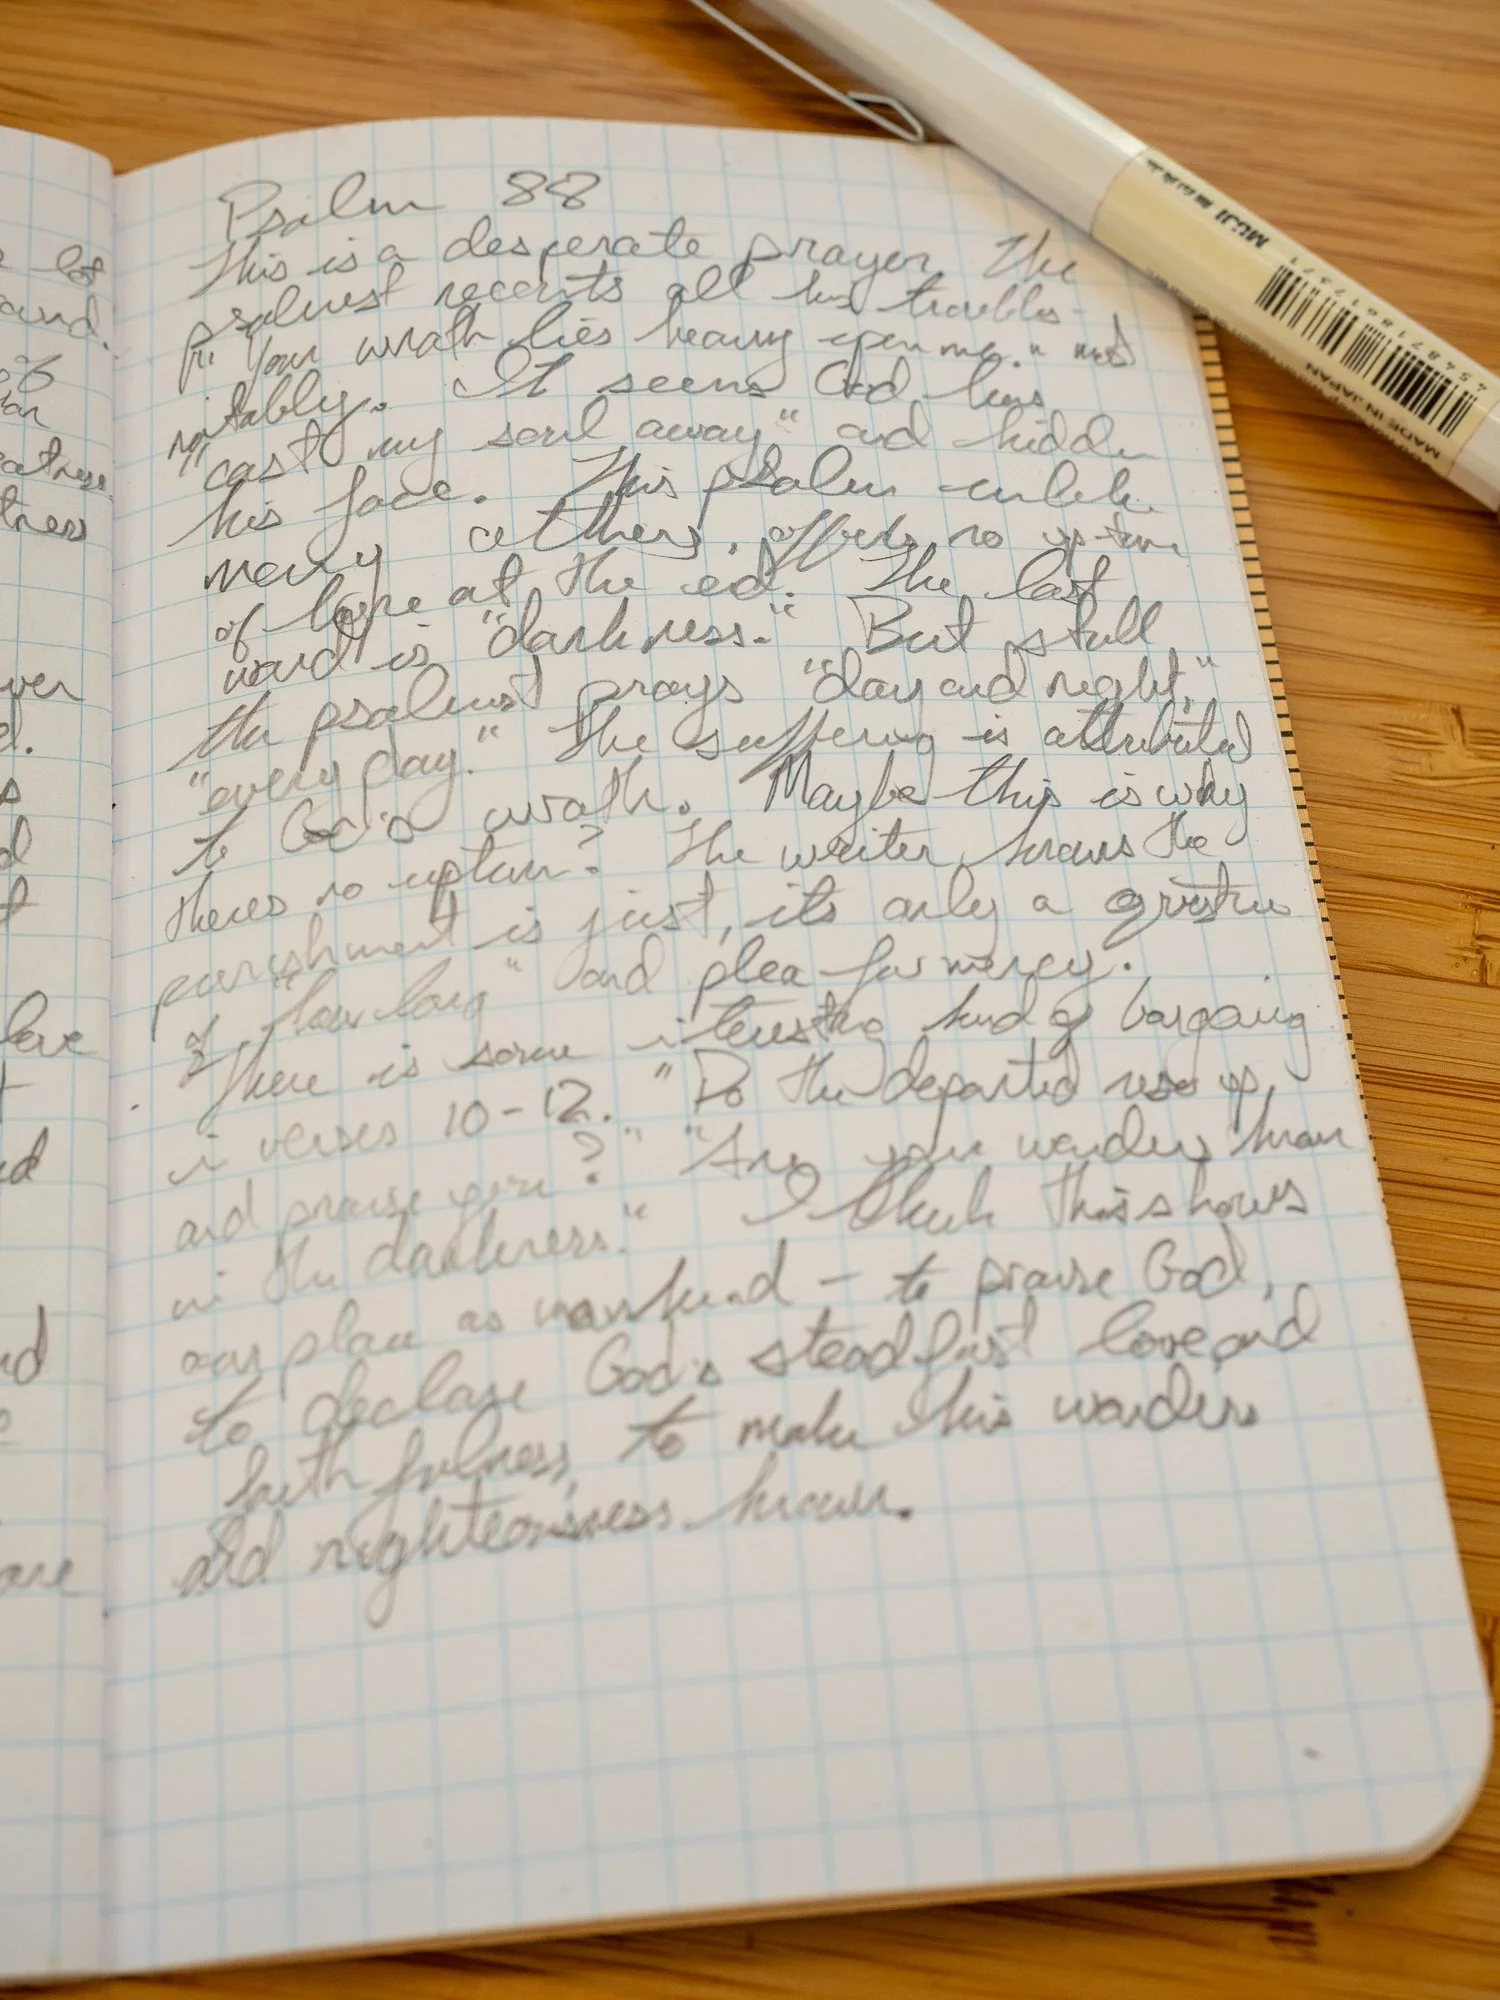 Psalm 88
This is a desperate prayer. The
psalmist recounts all his troubles -
"Your wrath lies heavy upon me." most
notably. It seems God has
"cast my soul away" and hidden
his face. This psalm unlike
many others, offers no up-turn
of hope at the ed. The last
word is "darkness." But still
the psalmist prays "day and night,"
"every day." The suffering is attributed
to God's wrath. Maybe this is why
theres no upturn? The writer knows the
punishment is just, its only a question
of "how long" and plea for mercy.
There is some interesting kind of bargaing
in verses 10-12. "Do the departed rise up
and praise you?" "Are your wonders known
in the darkness." I think this shows
our place as mankind - to praise God,
to declare God's steadfast love and
faithfulness, to make his wonders
and righteousness known.
lot
and.
of
eatness
tness
ver
d.
love
and
MUJI 無印良品
4548718017371
MADE IN JAPAN